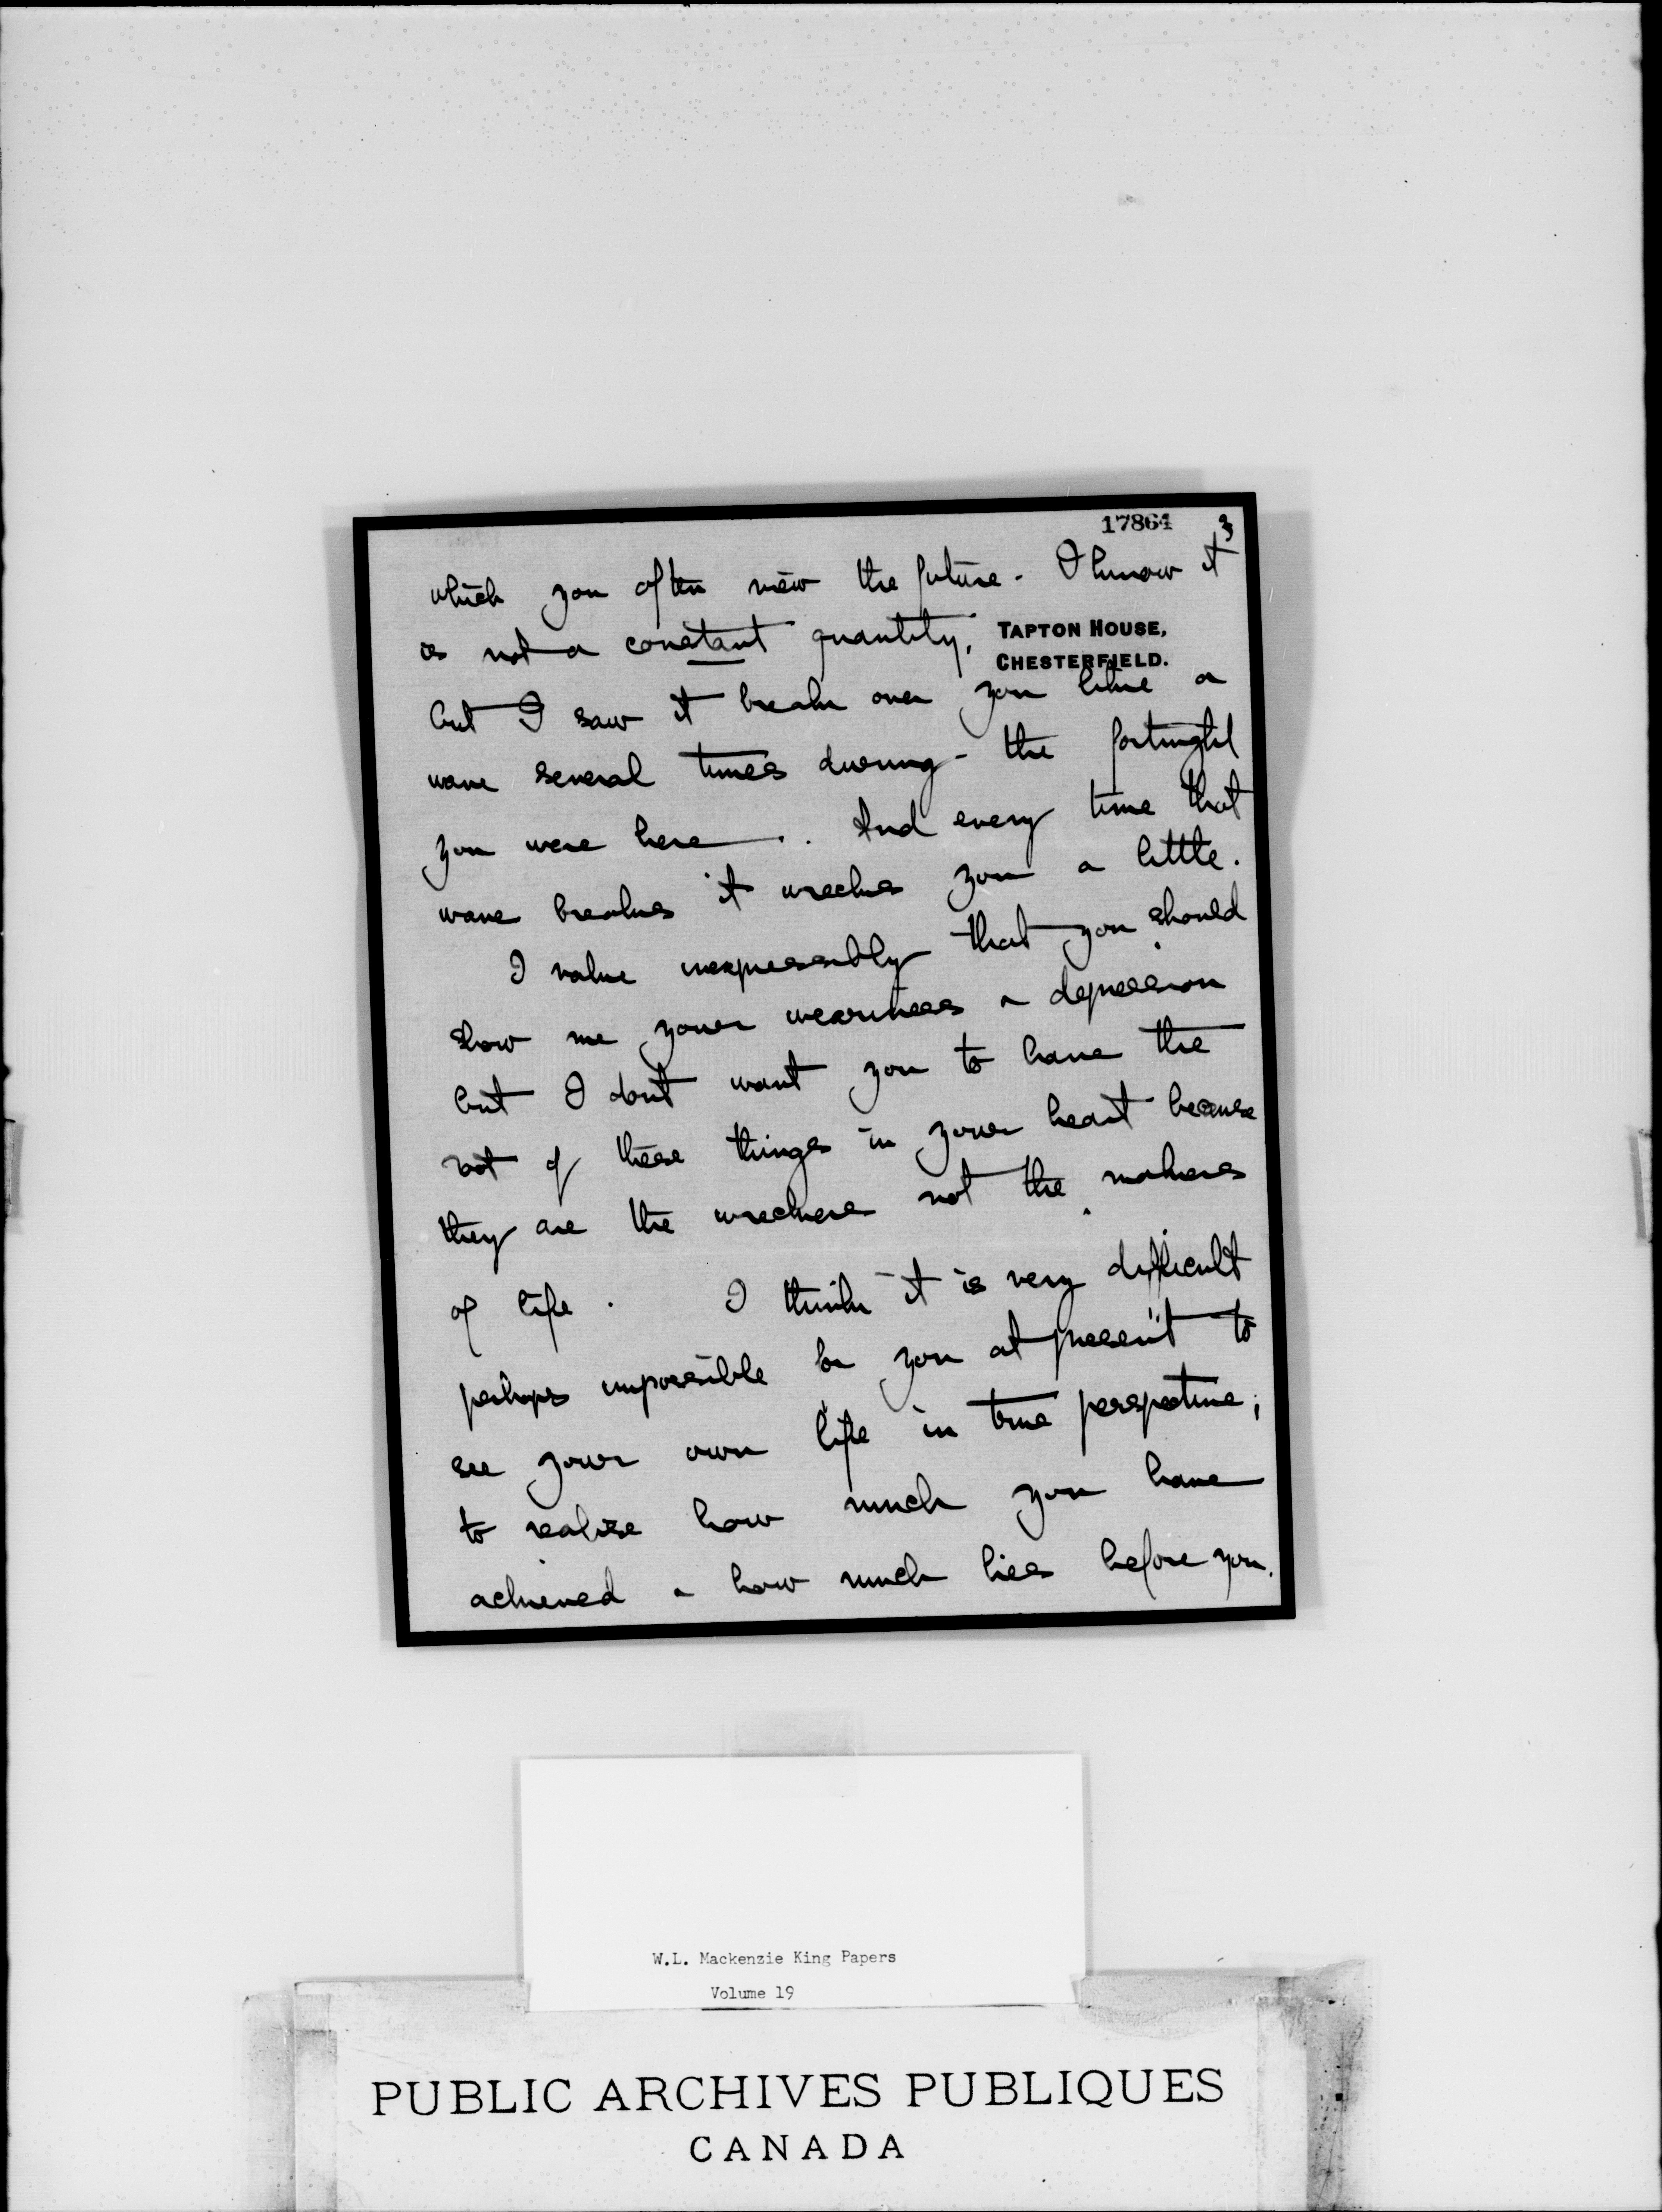 17864 3
which you often view the future - I know it
is not a constant quantity,
TAPTON HOUSE,
CHESTERFIELD.
but I saw it break over you like a
wave several times during - the fortnight
you were here . . And every time that
wave breaks it wrecks you a little.
I value inexpressibly that you should
show me your weariness & depression
but I dont want you to have the
root of these things in your heart because
they are the wreckers not the makers
of life . I think it is very difficult
perhaps impossible for you at present to
see your own life in true perspective;
to realise how much you have
achieved & how much lies before you.
W.L. Mackenzie King Papers
Volume 19
PUBLIC ARCHIVES PUBLIQUES
CANADA